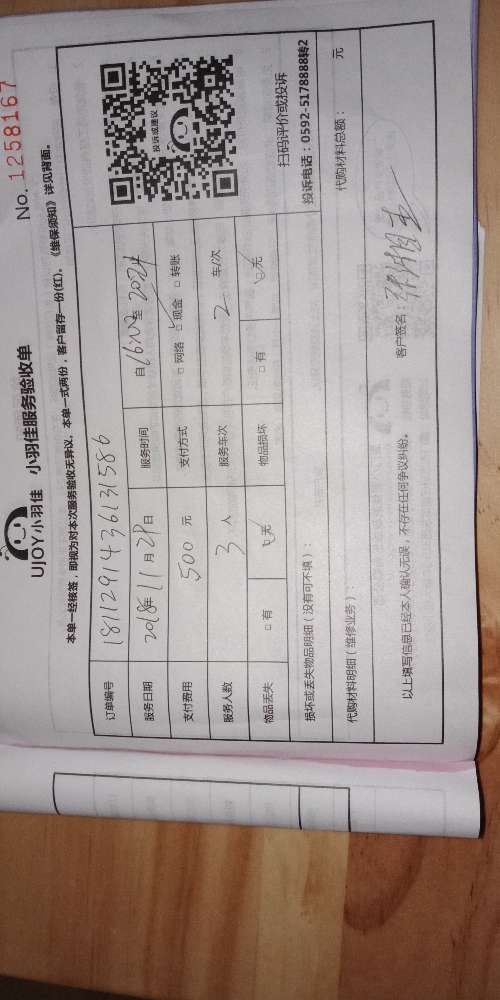 No. 1258167
UJOY小羽佳 小羽佳服务验收单
本单一经核签，即视为对本次服务验收无异议。本单一式两份，客户留存一份(红)。《维保须知》详见背面。
订单编号 181129143613158б
服务日期 2018年 11月 29日 服务时间 自16:00至2024
支付费用 500 元 支付方式 □网络 □现金 □转账
服务人数 3 人 服务车次 2 车/次
物品丢失 □有 □无 物品损坏 □有 □无
投诉或建议
扫码评价或投诉
投诉电话：0592-5178888转2
损坏或丢失物品明细（没有可不填）：
代购材料明细（维修业务）： 代购材料总额： 元
以上填写信息已经本人确认无误，不存在任何争议纠纷。 客户签名：